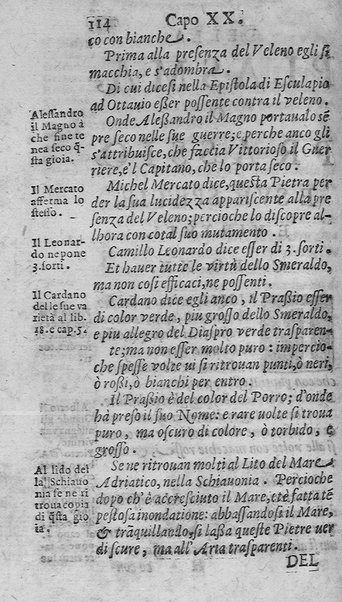 114 Capo XX.
co con bianche.
Prima alla presenza del Veleno egli si
macchia, e s'adombra.
Di cui dicesi nella Epistola di Esculapio
ad Ottauio eßer possente contra il veleno.
Alessandro
il Magno à
che fine te
nea seco q̃
sta gioia.
Onde Aleßandro il Magno portaualo sẽ
pre seco nelle sue guerre; e perche anco gli
s'attribuisce, che faccia Vittorioso il Guer
riere, e'l Capitano, che lo porta seco.
Il Mercato
afferma lo
stesso.
Michel Mercato dice, questa Pietra per
der la sua lucidezza appariscente alla pre
senza del Veleno; percioche lo discopre al-
lhora con cotal suo mutamento.
Il Leonar-
do ne pone
3. sorti.
Camillo Leonardo dice esser di 3. sorti.
Et hauer tutte le virtù dello Smeraldo,
ma non cosi efficaci, ne possenti.
Il Cardano
del le sue va
rietà al lib.
18. e cap. 5.
Cardano dice egli anco, il Praßio esser
di color verde, piu grosso dello Smeraldo,
e piu allegro del Diaspro verde trasparen-
te; ma non esser molto puro: impercio-
che spesse volte ui si ritrouan punti, ò neri,
ò roßi, ò bianchi per entro.
Il Praßio è del color del Porro; d'onde
hà preso il suo Nome: e rare uolte si troua
puro, ma oscuro di colore, ò torbido, e
grosso.
Al lido del
la Schiauo
nia se ne ri
troua copia
di q̃sta gio
ia.
Se ne ritrouan molti al Lito del Mare
Adriatico, nella Schiauonia. Percioche
dopo ch' è accresciuto il Mare, etè fatta tẽ
pestosa inondatione: abbassandosi il Mare,
& trãquillando, si laßa queste Pietre uer
di scure, ma all' Aria trasparenti.
DEL